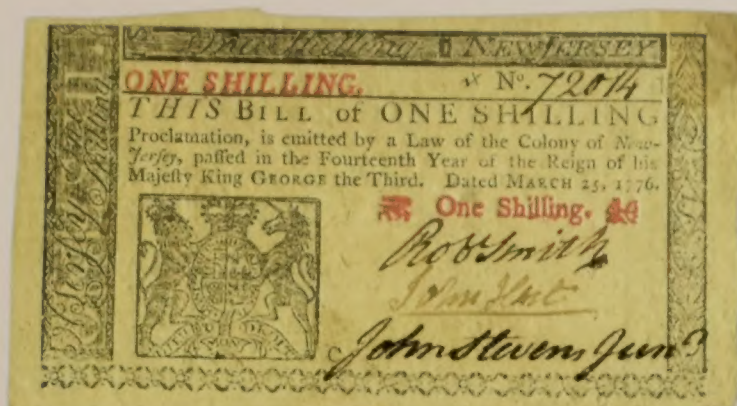 One Shilling NEW JERSEY
ONE SHILLING. No. 72014
THIS BILL of ONE SHILLING
Proclamation, is emitted by a Law of the Colony of New-
Jersey, paſſed in the Fourteenth Year of the Reign of his
Majeſty King GEORGE the Third. Dated MARCH 25, 1776.
One Shilling.
Robt Smith
John Hart
John Stevens Junr